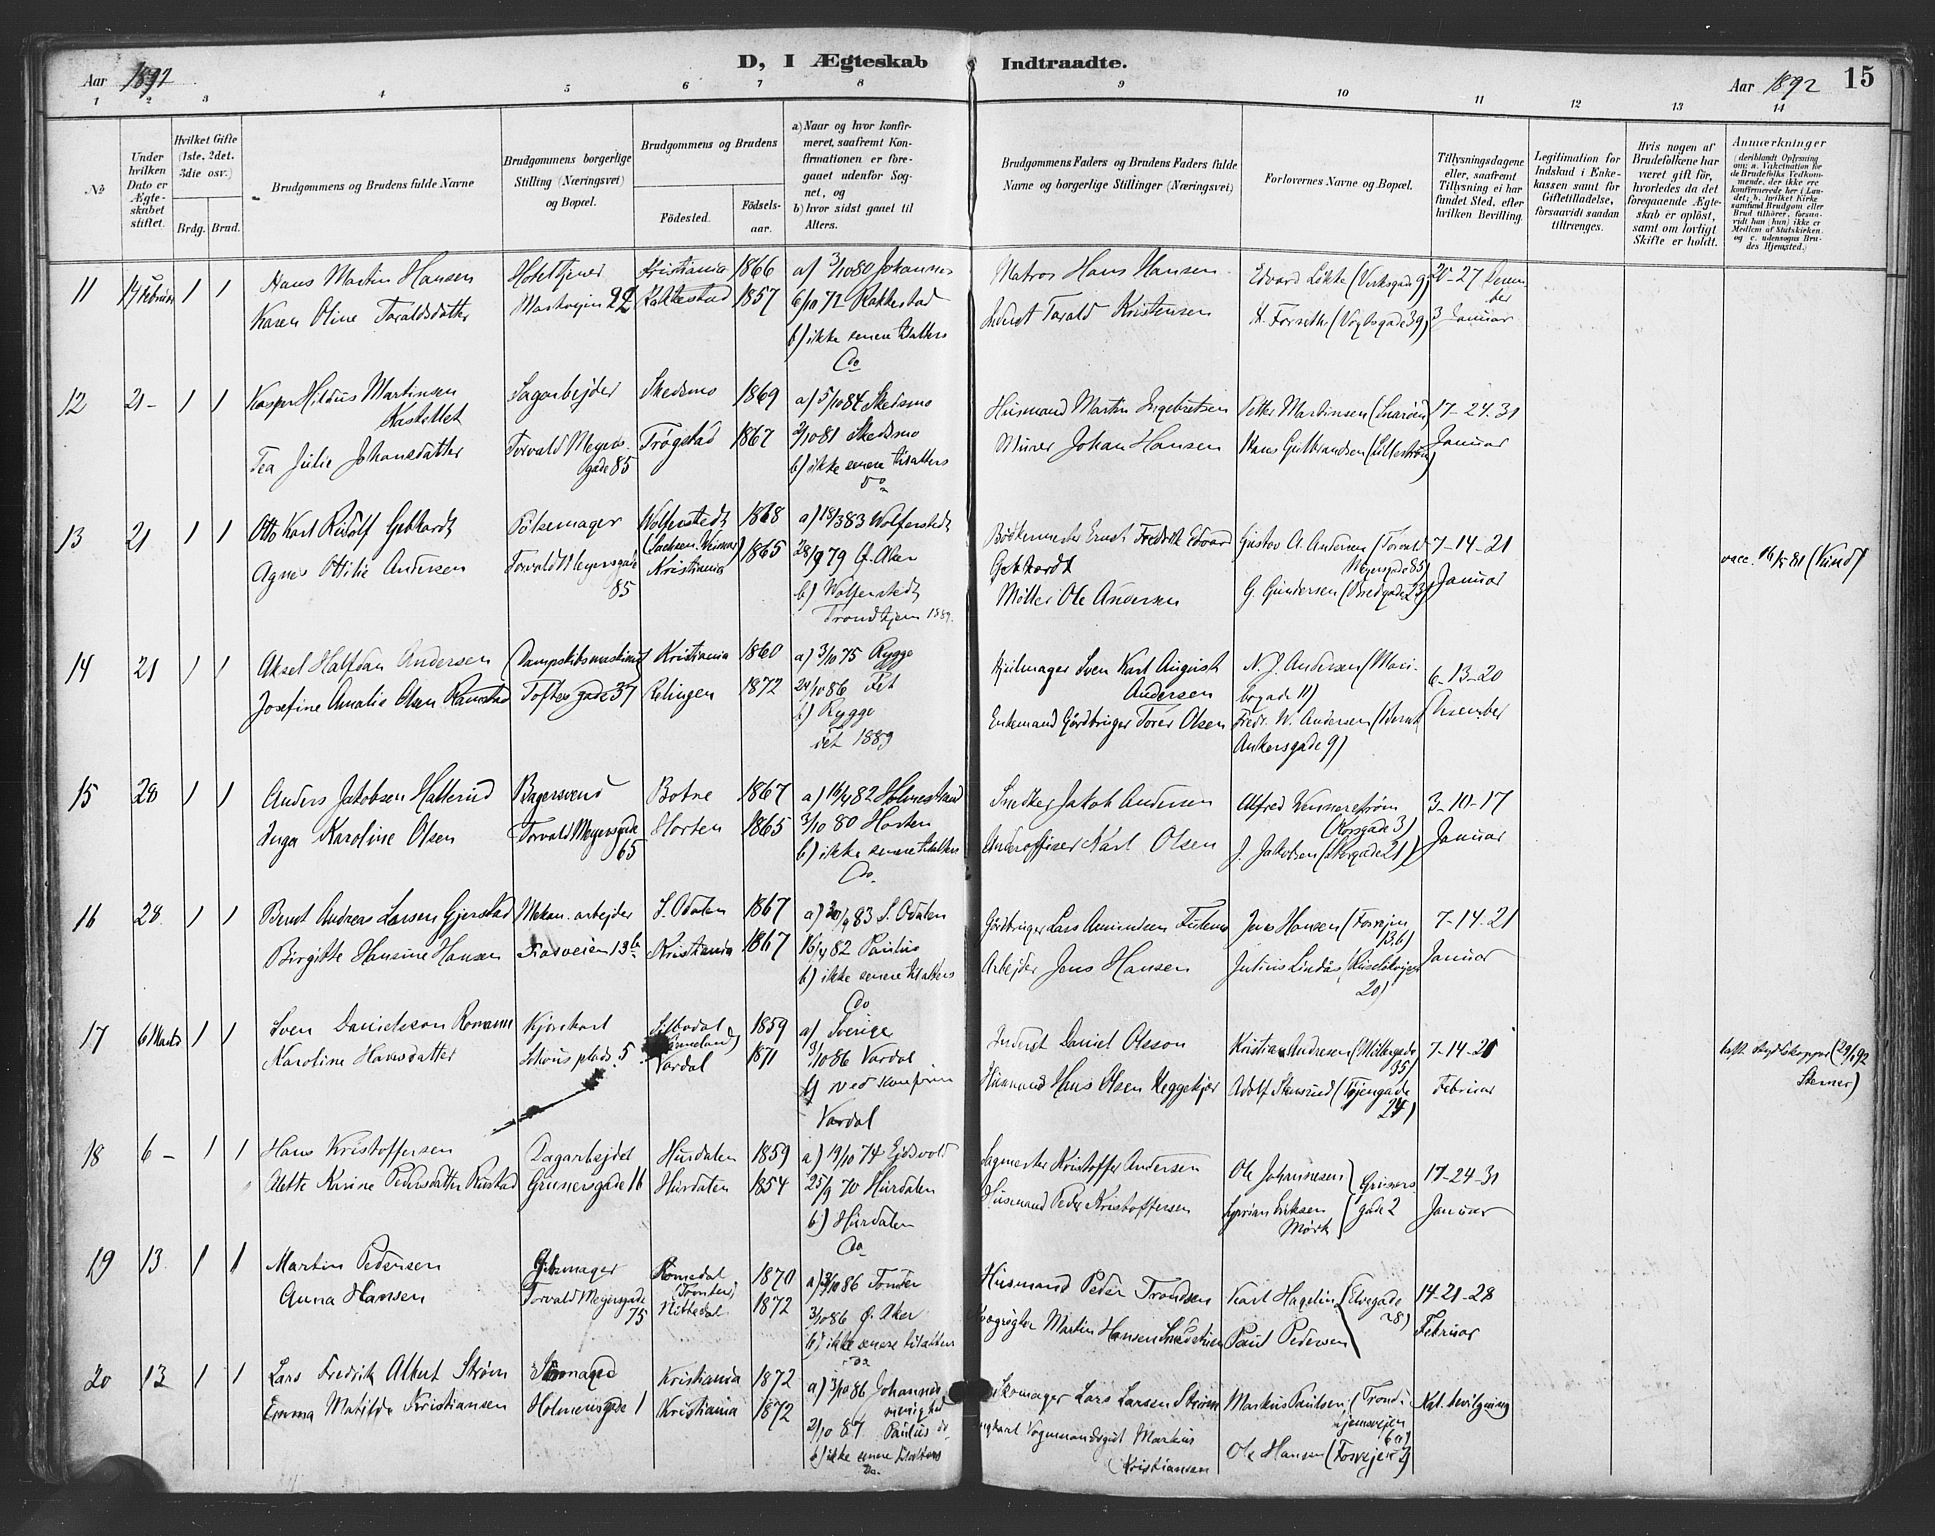 Aar 1892
D, I Ægteskab Indtraadte.
Aar 1892 15
1 2 3 4 5 6 7 8 9 10 11 12 13 14
№
Under hvilken Dato er Ægteskabet stiftet.
Hvilket Gifte (1ste, 2det, 3die osv.)
Brdg. Brud.
Brudgommens og Brudens fulde Navne
Brudgommens borgerlige Stilling (Næringsvei) og Bopæl.
Brudgommens og Brudens
Fødested.
Fødselsaar.
a) Naar og hvor konfirmeret, saafremt Konfirmationen er foregaaet udenfor Sognet, og
b) hvor sidst gaaet til Alters.
Brudgommens Faders og Brudens Faders fulde Navne og borgerlige Stillinger (Næringsvei)
Forlovernes Navne og Bopæl.
Tillysningsdagene eller, saafremt Tillysning ei har fundet Sted, efter hvilken Bevilling.
Legitimation for Indskud i Enkekassen samt for Giftetilladelse, forsaavidt saadan tiltrænges.
Hvis nogen af Brudefolkene har været gift før, hvorledes da det foregaaende Ægteskab er opløst, samt om lovligt Skifte er holdt.
Anmærkninger
(deriblandt Oplysning om: a. Vakcination for de Brudefolks Vedkommende, der ikke ere konfirmerede her i Landet; b. hvilket Kirkesamfund Brudgom eller Brud tilhører, forsaavidt han (hun) ikke er Medlem af Statskirken, og c. udensogns Brudes Hjemsted.)
11 17 Februar 1 1 Hans Martin Hansen Hoteltjener Kristiania 1866 a) 3/10 80 Johannes Matros Hans Hansen Edvard Løkke (Verksgade 9) 20-27 Desember
Karen Oline Taraldsdatter Markveien 22 Rakkestad 1857 6/10 72 Rakkestad Inderst Tarald Kristensen H. Forseth (Vogtsgade 39) 3 Januar
b) ikke senere tilalters
Do
12 21 - 1 1 Kasper Hilius Martinsen Sagarbejder Skedsmo 1869 a) 5/10 84 Skedsmo Husmand Martin Ingebretsen Petter Martinsen 17-24-31
Kastellet
Tea Julie Johansdatter Torvald Meyers gade 85 Trøgstad 1867 2/10 81 Skedsmo Murer Johan Hansen Hans Gulbrandsen (Lillestrøm) Januar
b) ikke senere tilalters
do
13 21 1 1 Otto Karl Rudolf Gebhardt Pølsemager Wolferstedt 1868 a) 18/3 83 Wolferstedt Bødkermester Ernst Fredrik Edvard Gebhardt Gustav A. Andersen (Torvald Meyersgade 85) 7-14-21
(Sachsen-Weimar)
Agnes Ottilie Andersen Torvald Meyersgade 85 Kristiania 1865 28/9 79 Ø. Aker Møller Ole Andersen G. Gundersen (Bredgade 23) Januar vacc. 16/5 81 (Kund)
b) Wolferstedt
Trondhjem 1889.
14 21 1 1 Aksel Halfdan Andersen Dampskibsmaskinist Kristiania 1860 a) 3/10 75 Rygge Hjulmager Sven Karl August Andersen N. J. Andersen (Maribogade 11) 6-13-20
Josefine Amalie Olsen Ramstad Toftes gade 37 Relingen 1872 24/10 86 Fet Enkemand Gårdbruger Torer Olsen Fredr. W. Andersen (Bernt Ankersgade 9) Desember
b) Rygge
Fet 1889
15 28 1 1 Anders Jakobsen Hallerud Bagersvend Botne 1867 a) 16/4 82 Holmestrand Snedker Jakob Andersen Alfred Wennerstrøm (Korsgade 3) 3-10-17
Inga Karoline Olsen Torvald Meyersgade 65 Horten 1865 3/10 80 Horten Underoffiser Karl Olsen J. Jakobsen (Korsgade 21) Januar
b) ikke senere tilalters
Do.
16 28 1 1 Bernt Andreas Larsen Gjerstad Mekan. arbejder S. Odalen 1867 a) 30/9 83 S. Odalen Gårdbruger Lars Amundsen Jens Hansen (Fosvejen 13 b) 7-14-21
Birgitte Hansine Hansen Fosveien 13 b Kristiania 1867 16/4 82 Paulus Arbejder Jens Hansen Julius Lindås (Ruseløkvejen 20) Januar
b) ikke senere tilalters
Do
17 6 Marts 1 1 Sven Danielsson Romann Kjørekarl Silbodal 1859 a) Sverige Inderst Daniel Olsson Kristian Andresen (Møllergade 35) 7-14-21
(Vermeland)
Karoline Hansdatter Schous plads 5 Vardal 1871 3/10 86 Vardal Husmand Hans Olsen Heggekjær Adolf Stensrud (Tøjengade 24) Februar
b) ved konfirm
Vardal
18 6 - 1 1 Hans Kristoffersen Dagarbejder Hurdalen 1859 a) 19/10 74 Ejdsvold Sagmester Kristoffer Andersen Ole Johannesen 17-24-31
Alette Karine Pedersdatter Rustad Grunersgade 16 Hurdalen 1854 25/9 70 Hurdalen Husmand Peder Kristoffersen Syprian Eriksen Mørk Gruners gade 2 Januar
b) Hurdalen
Do
19 13 1 1 Martin Pedersen Romedal 1870 a) 3/10 86 Tønset Husmand Peder Trondsen Karl Hagelin (Elvegade 28) 14-21-28
Anna Hansen Torvald Meyersgade 75 Nittedal 1872 3/10 86 Ø. Aker Martin Hansen Paul Pedersen Februar
b) ikke senere tilalters
do
20 13 1 1 Lars Fredrik Albert Strøm Kristiania 1872 a) 3/10 86 Johannes menighed Skomager Lars Larsen Strøm Markus Paulsen (Trondhjemsvejen 60) Kgl. bevilgning
Emma Matilde Kristiansen Holmensgade 1 Kristiania 1872 2/10 87 Paulus do Markus Kristiansen Ole Hansen (Fosvejen 7)
b) ikke senere tilalters
Do.